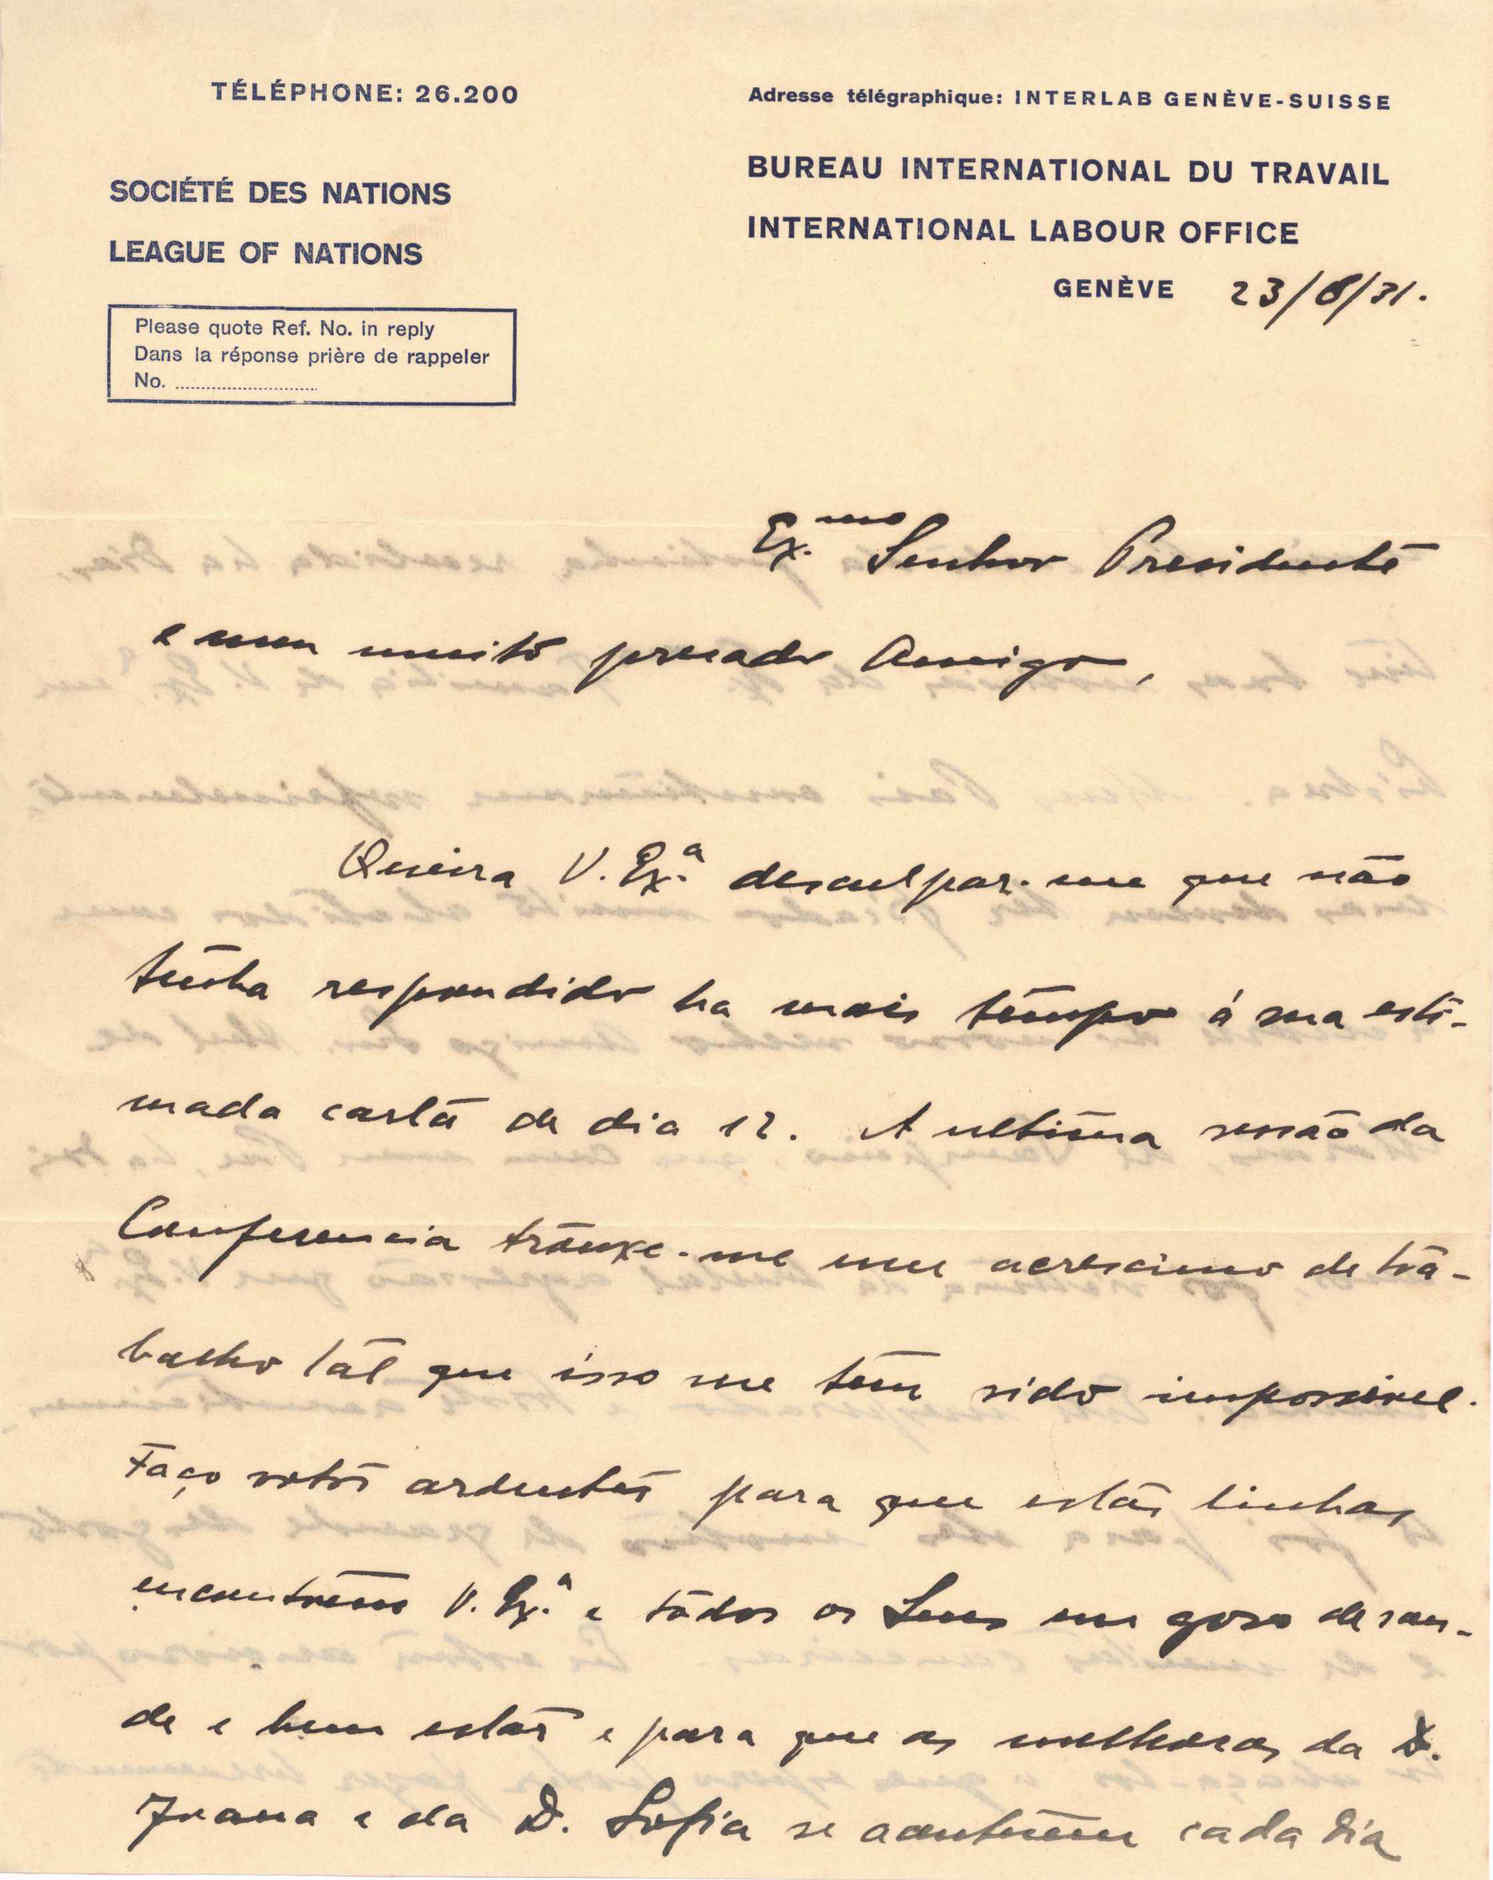 TÉLÉPHONE: 26.200
Adresse télégraphique: INTERLAB GENÈVE-SUISSE
SOCIÉTÉ DES NATIONS
LEAGUE OF NATIONS
BUREAU INTERNATIONAL DU TRAVAIL
INTERNATIONAL LABOUR OFFICE
GENÈVE 23/8/31.
Please quote Ref. No. in reply
Dans la réponse prière de rappeler
No. ............................
Ex.mo Senhor Presidente
e meu muito presado Amigo,
Queira V. Ex.ª desculpar-me que não
tenha respondido ha mais tempo á sua esti-
mada carta de dia 12. A ultima sessão da
Conferencia trouxe-me um acrescimo de tra-
balho tal que isso me tem sido impossivel.
Faço votos ardentes para que estas linhas
encontrem V. Ex.ª e todos os Seus em goso de sau-
de e bem estar e para que as melhoras da D.
Joana e da D. Sofia se acentuem cada dia